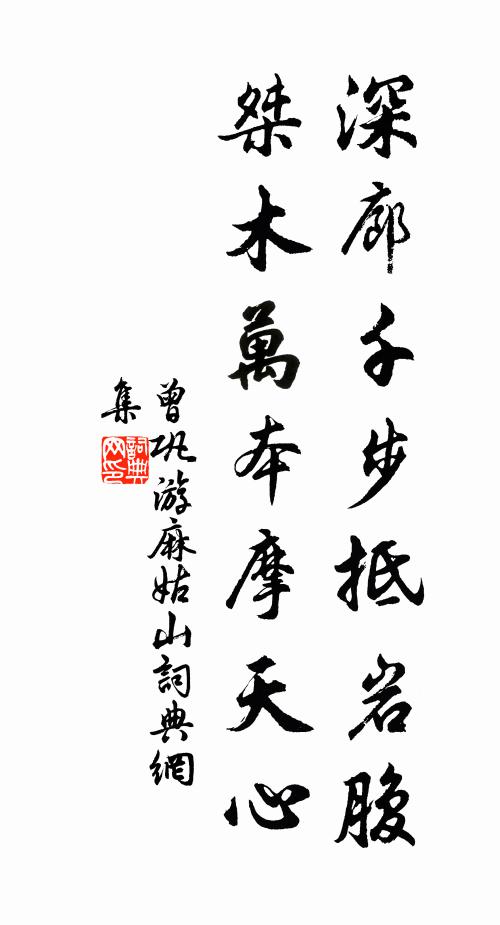 深廊千步抵岩腹
桀木萬本摩天心
曾巩游麻姑山詞典網
集
詞典
网印